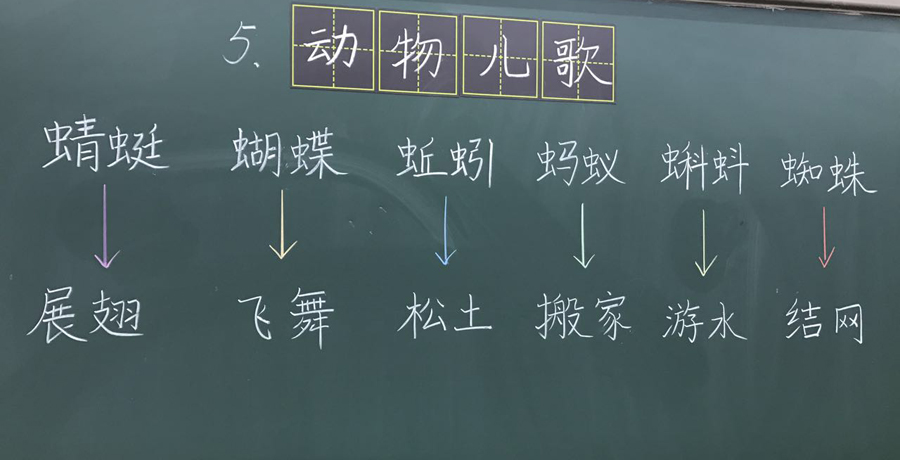 5、动物儿歌
蜻蜓 蝴蝶 蚯蚓 蚂蚁 蝌蚪 蜘蛛
展翅 飞舞 松土 搬家 游水 结网